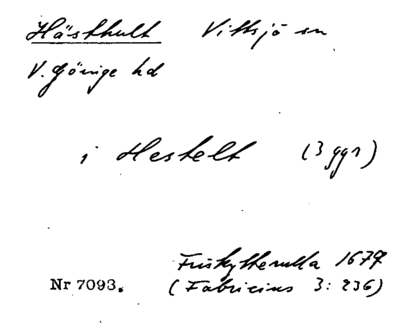 Hästhult Vittsjö sn
V. Göinge hd
i Hestelt (3 ggr)
Friskytterulla 1679
Nr 7093. (Fabricius 3: 236)